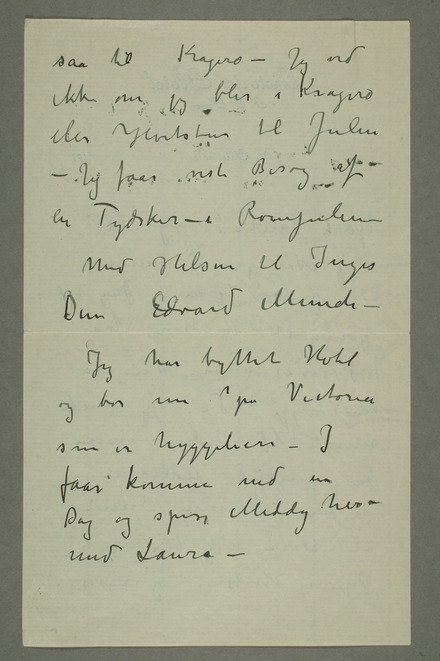 saa til Kragerø – Jeg ved
ikke om jeg blir i Kragerø
eller Hvitsten til Julen
– Jeg faar visst Besøg af –
en Tydsker – i Romjulen –
Med Hilsen til Inger
Din Edvard Munch –
Jeg har byttet Hotel
og bor nu på Victoria
som er hyggeligere – I
faar komme ned en
Dag og spise Middag her –
med Laura –